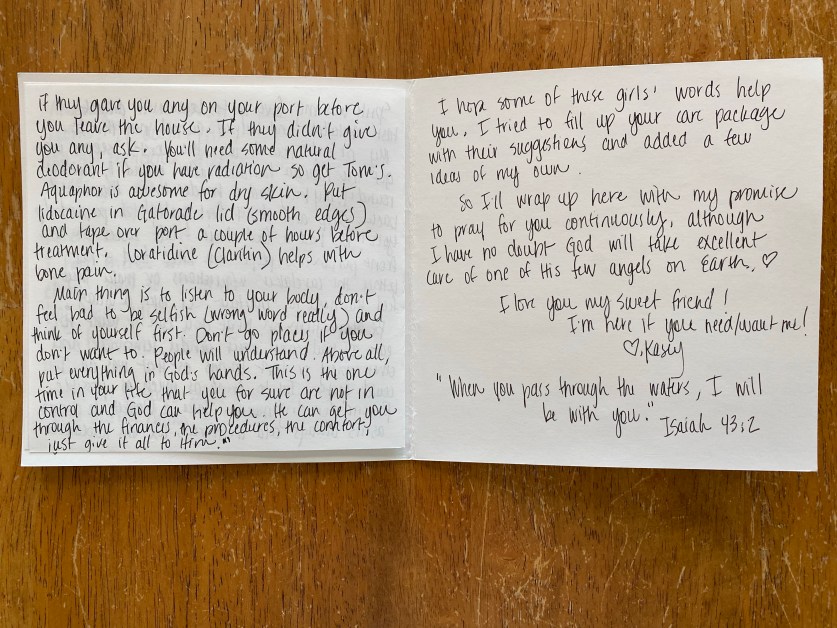 if they gave you any on your port before
you leave the house. If they didn't give
you any, ask. You'll need some natural
deodorant if you have radiation so get Tom's.
Aquaphor is awesome for dry skin. Put
lidocaine in Gatorade lid (smooth edges)
and tape over port a couple of hours before
treatment. Loratidine (Claritin) helps with
bone pain.
Main thing is to listen to your body, don't
feel bad to be selfish (wrong word really) and
think of yourself first. Don't go places if you
don't want to. People will understand. Above all,
put everything in God's hands. This is the one
time in your life that you for sure are not in
control and God can help you. He can get you
through the finances, the procedures, the comfort,
just give it all to Him."
I hope some of these girls' words help
you. I tried to fill up your care package
with their suggestions and added a few
ideas of my own.
So I'll wrap up here with my promise
to pray for you continuously, although
I have no doubt God will take excellent
care of one of His few angels on Earth. ♡
I love you my sweet friend!
I'm here if you need/want me!
♡, Kasey
"When you pass through the waters, I will
be with you."
Isaiah 43:2